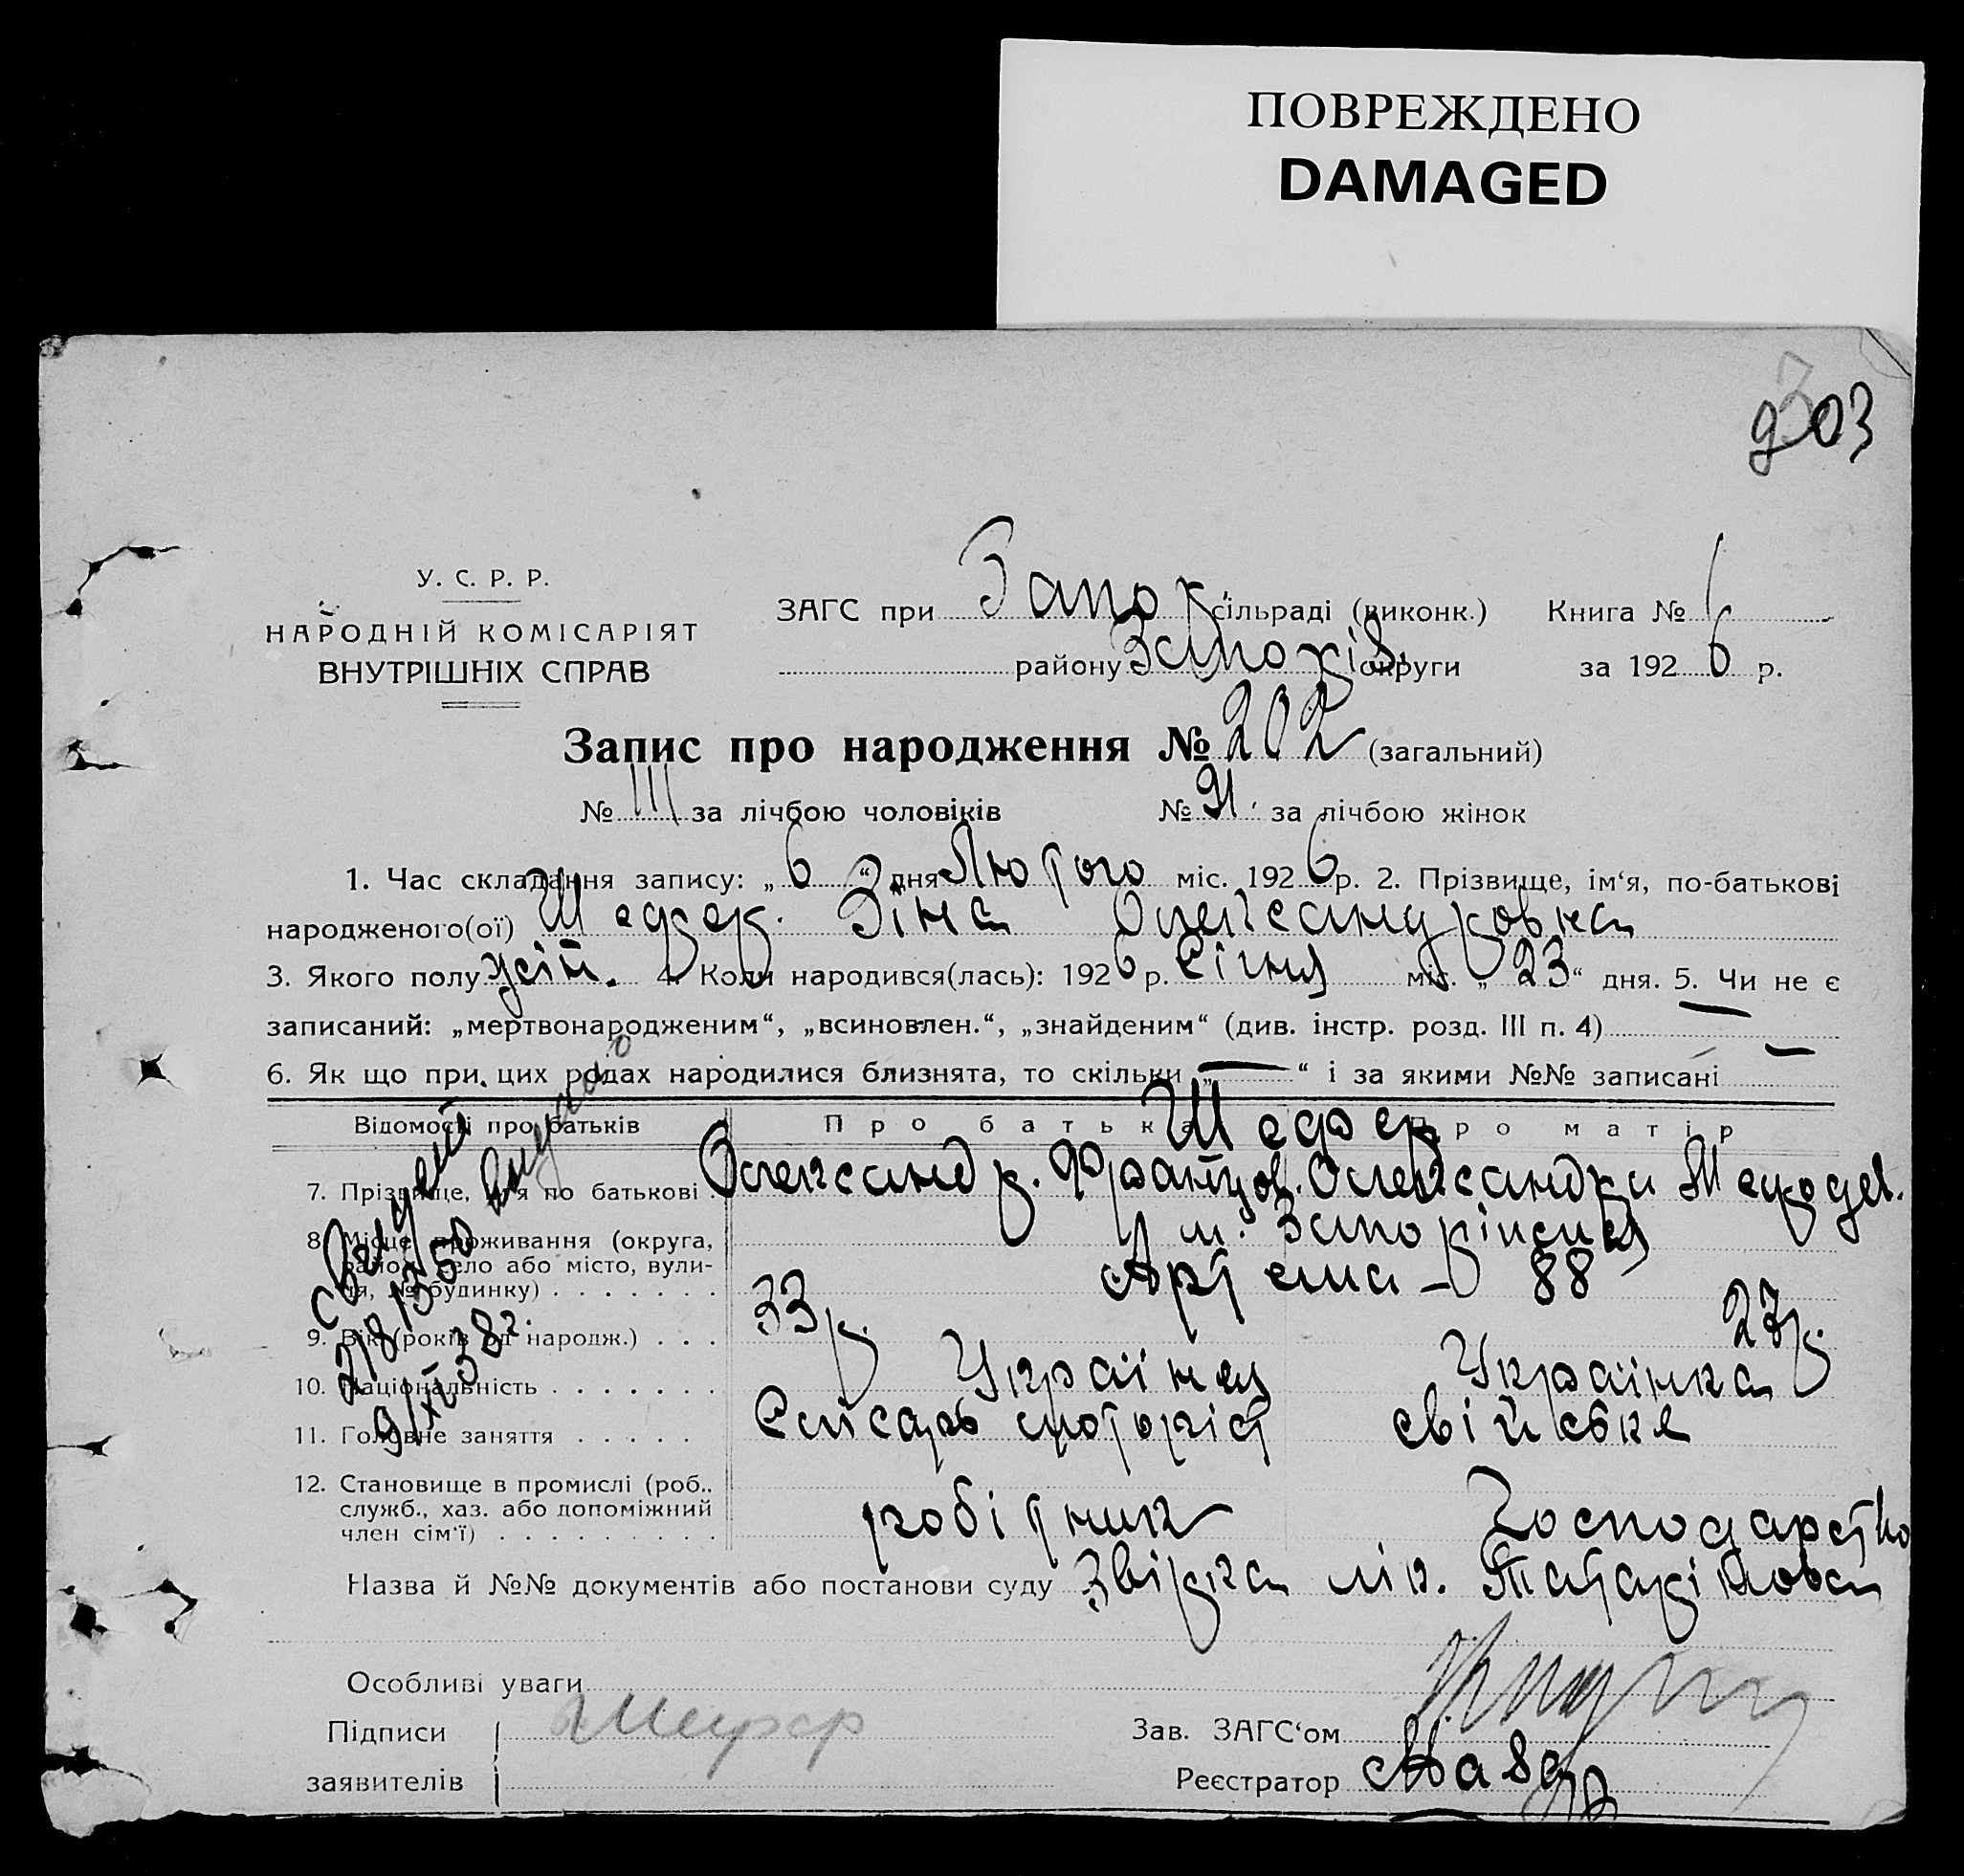 ПОВРЕЖДЕНО
DAMAGED
У. С. Р. Р.
НАРОДНІЙ КОМІСАРІЯТ
ВНУТРІШНІХ СПРАВ
ЗАГС при Запор. сільраді (виконк.) Книга №
району Запоріз. округи за 1926 р.
Запис про народження № 202 (загальний)
№ 111 за лічбою чоловіків № 91 за лічбою жінок
1. Час складання запису: „6“ дня Лютого міс. 1926 р. 2. Прізвище, ім‘я, по-батькові
народженого(ої) Шефер. Зіна Олександровна
3. Якого полу жін. 4. Коли народився(лась): 1926 р. Січня міс. „23“ дня. 5. Чи не є
записаний: „мертвонародженим“, „всиновлен.“, „знайденим“ (див. інстр. розд. III п. 4) —
6. Як що при цих родах народилися близнята, то скільки „—“ і за якими №№ записані —
Відомості про батьків Про батька Про матір
Шефер
7. Прізвище, ім‘я по батькові . Олександр. Францов. Олександра
8. Місце проживання (округа, м. Запоріжжя
район, село або місто, вули-
ця, № будинку) . . . . . . . Артема – 88
9. Вік (років од народж.) . . . 33 р. 27 р.
10. Національність . . . . . . . Українец Українка
11. Головне заняття . . . . . Слюсарь моторіст свійське
12. Становище в промислі (роб.,
служб., хаз. або допоміжний робітник господарство
член сім‘ї) . . . . . . . . .
Назва й №№ документів або постанови суду Звірка лік.
Особливі уваги
Підписи Шефер Зав. ЗАГС‘ом
заявителів Реєстратор